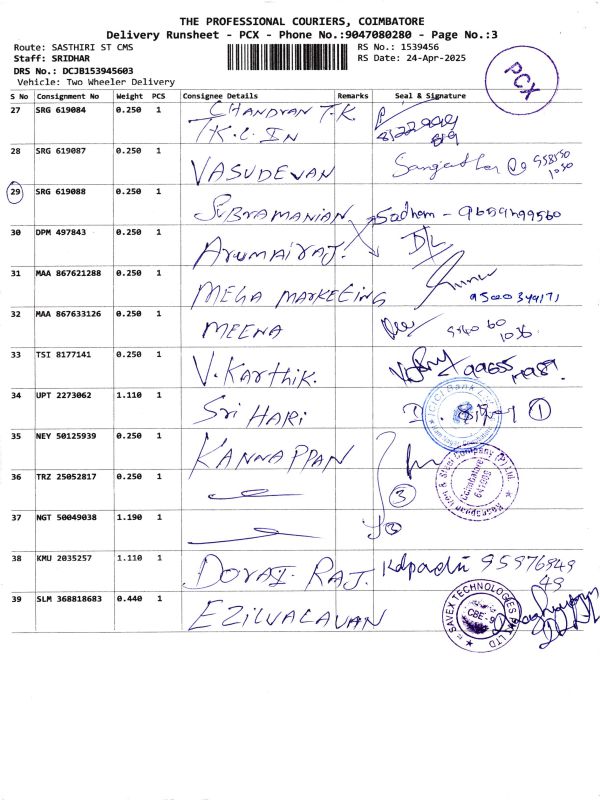 THE PROFESSIONAL COURIERS, COIMBATORE
Delivery Runsheet - PCX - Phone No.:9047080280 - Page No.:3
Route: SASTHIRI ST CMS
RS No.: 1539456
Staff: SRIDHAR
RS Date: 24-Apr-2025
DRS No.: DCJB153945603
Vehicle: Two Wheeler Delivery
PCX
S No Consignment No Weight PCS Consignee Details Remarks Seal & Signature
27 SRG 619084 0.250 1 CHANDRAN T.K
28 SRG 619087 0.250 1 VASUDEVAN
29 SRG 619088 0.250 1 SUBRAMANIAN Sadham - 9659299560
30 DPM 497843 0.250 1 ArumaiRAJ. D/L
31 MAA 867621288 0.250 1 MEGA MARKETING
32 MAA 867633126 0.250 1 MEENA
33 TSI 8177141 0.250 1 V. Karthik.
34 UPT 2273062 1.110 1 Sri HARI 1
35 NEY 50125939 0.250 1 KANNAPPAN
36 TRZ 25052817 0.250 1 3
37 NGT 50049038 1.190 1 3
38 KMU 2035257 1.110 1 DORAI. RAJ. 95976949
49
39 SLM 368818683 0.440 1 EZILVALAVAN SAVEX TECHNOLOGIES PVT LTD CBE-9